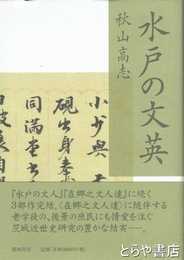 水戸の文英
秋山高志
小少與
硯出身素
同滿堂
『水戸の文人』『在郷之文人達』に続く
3部作完結、〈在郷之文人達〉に随伴する
老学徒の、後景の庶民にも情愛を注ぐ
茨城近世史研究の豊かな結実――。
とらや書店